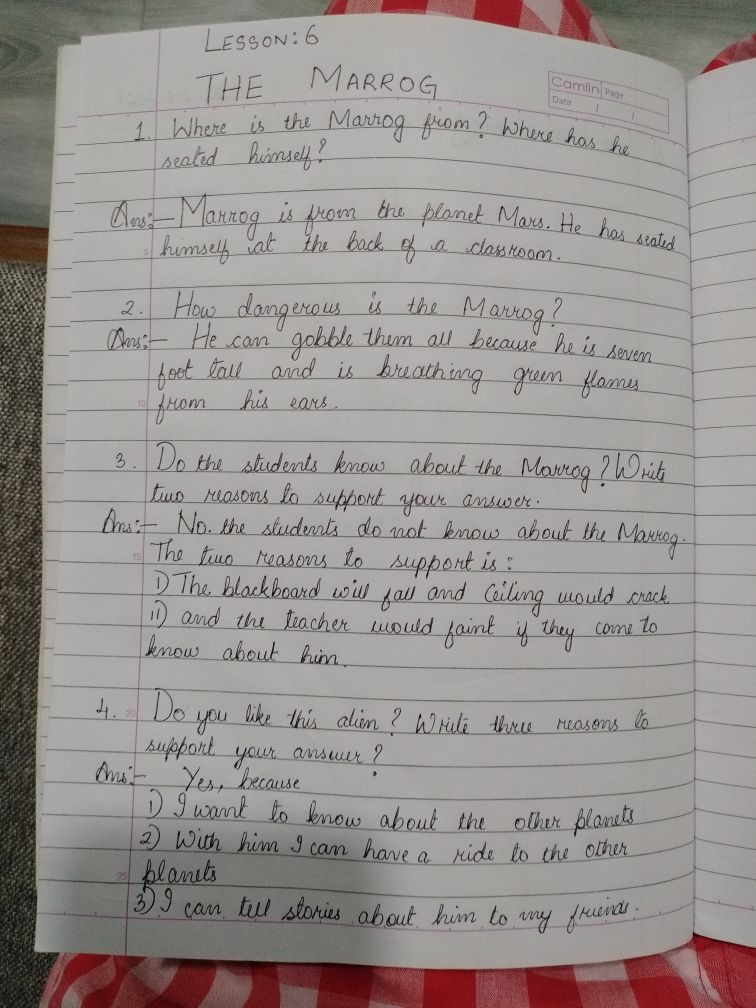 LESSON: 6
THE MARROG
Camlin Page
Date / /
1. Where is the Marrog from? Where has he
seated himself?
Ans:- Marrog is from the planet Mars. He has seated
5 himself at the back of a classroom.
2. How dangerous is the Marrog?
Ans:- He can gobble them all because he is seven
foot tall and is breathing green flames
10 from his ears.
3. Do the students know about the Marrog? Write
two reasons to support your answer.
Ans:- No. the students do not know about the Marrog.
15 The two reasons to support is:
I) The blackboard will fall and Ceiling would crack
II) and the teacher would faint if they come to
know about him.
4. 20 Do you like this alien? Write three reasons to
support your answer?
Ans:- Yes, because
1) I want to know about the other planets
2) With him I can have a ride to the other
25 planets
3) I can tell stories about him to my friends.